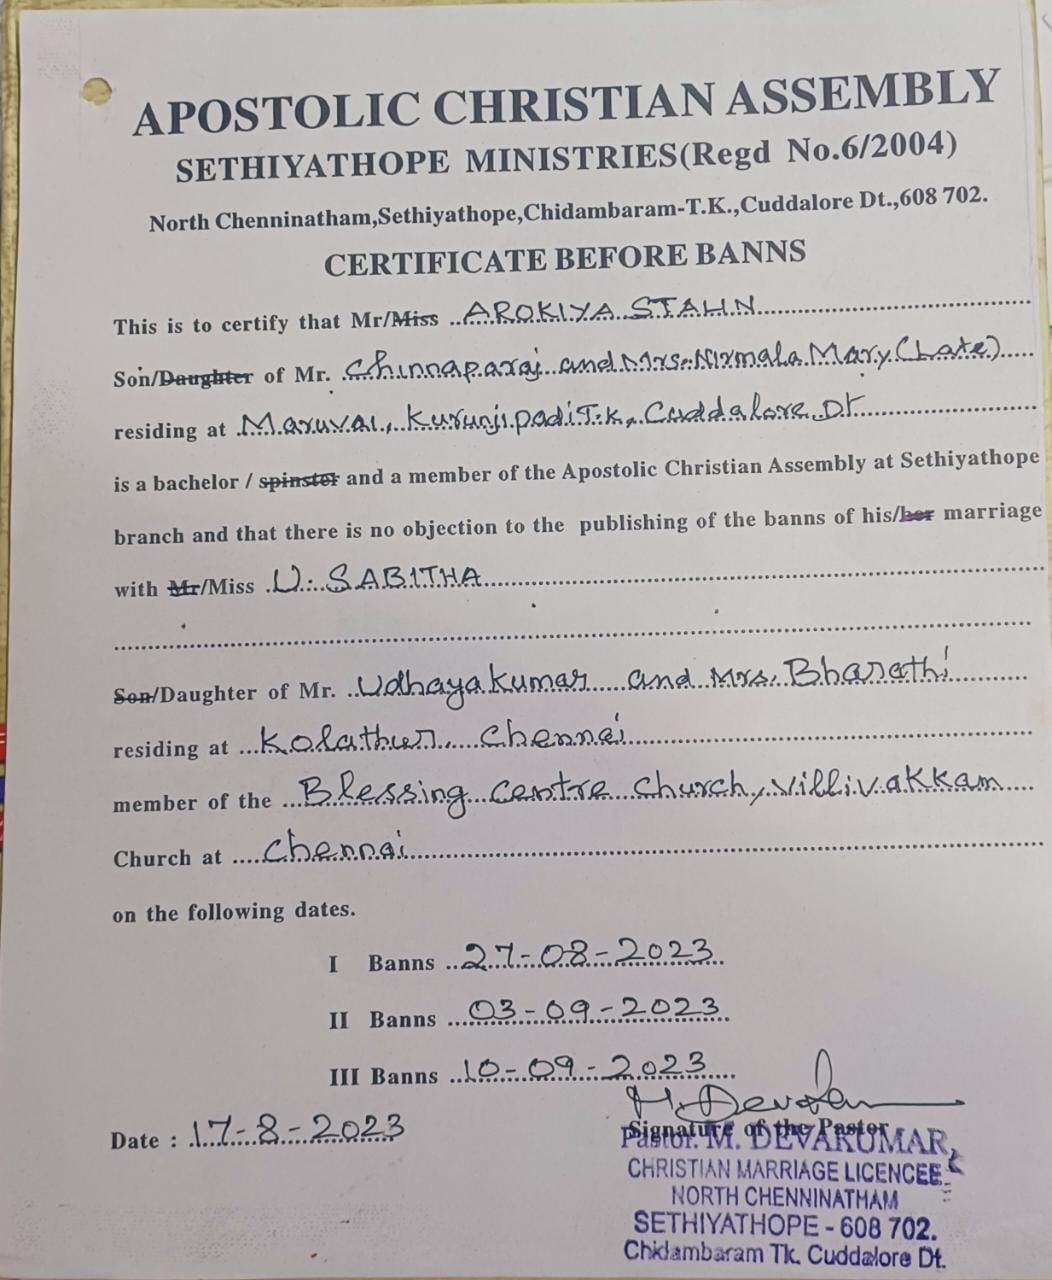 APOSTOLIC CHRISTIAN ASSEMBLY
SETHIYATHOPE MINISTRIES(Regd No.6/2004)
North Chenninatham,Sethiyathope,Chidambaram-T.K.,Cuddalore Dt.,608 702.
CERTIFICATE BEFORE BANNS
This is to certify that Mr/Miss AROKIYA STALIN
Son/Daughter of Mr. Chinnaparaj and Mrs. Nirmala Mary (Late)
residing at Maruvai, Kurunjipadi T.k, Cuddalore Dt
is a bachelor / spinster and a member of the Apostolic Christian Assembly at Sethiyathope
branch and that there is no objection to the publishing of the banns of his/her marriage
with Mr/Miss U. SABITHA
Son/Daughter of Mr. Udhayakumar and Mrs. Bharathi
residing at Kolathur, Chennai
member of the Blessing Centre Church, Villivakkam
Church at Chennai
on the following dates.
I Banns 27-08-2023
II Banns 03-09-2023
III Banns 10-09-2023
M. Devakumar
Date : 17-8-2023
Signature of the Pastor
Pastor. M. DEVAKUMAR,
CHRISTIAN MARRIAGE LICENCEE
NORTH CHENNINATHAM
SETHIYATHOPE - 608 702.
Chidambaram Tk. Cuddalore Dt.